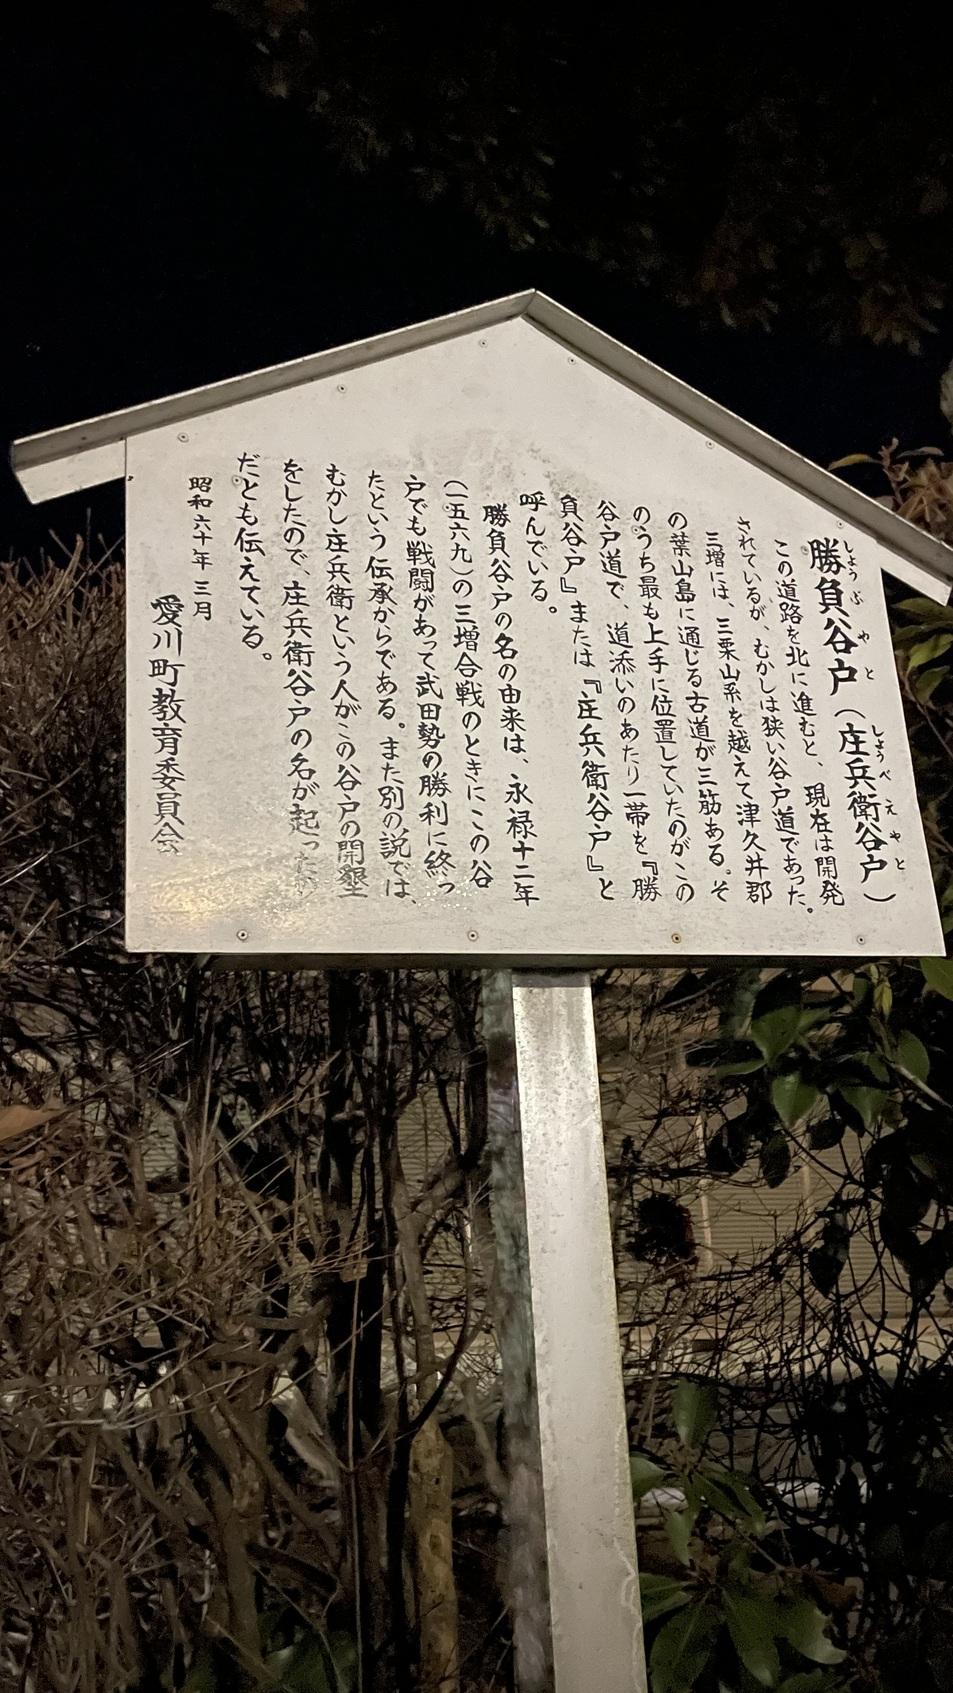 勝負谷戸(庄兵衛谷戸)
しょうぶやと しょうべえやと
この道路を北に進むと、現在は開発
されているが、むかしは狭い谷戸道であった。
三増には、三栗山系を越えて津久井郡
の葉山島に通じる古道が三筋ある。そ
のうち最も上手に位置していたのがこの
谷戸道で、道添いのあたり一帯を『勝
負谷戸』または『庄兵衛谷戸』と
呼んでいる。
勝負谷戸の名の由来は、永禄十二年
(一五六九)の三増合戦のときにこの谷
戸でも戦闘があって武田勢の勝利に終っ
たという伝承からである。また別の説では、
むかし庄兵衛という人がこの谷戸の開墾
をしたので、庄兵衛谷戸の名が起った
だとも伝えている。
昭和六十年 三月
愛川町教育委員会